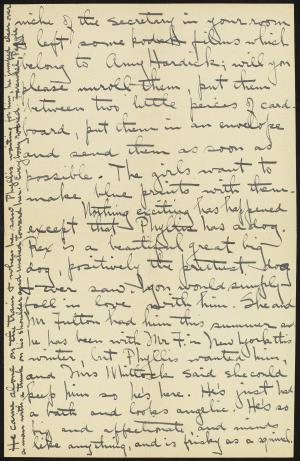 niche of the secretary in your room
I left some kodak films which
belong to Amy Hardick; will you
please unroll them, put them
between two little peices of card-
board, put them in an envelope
and send them as soon as
possible. The girls want to
make blue prints with them.
Nothing exciting has happened
except that Phyllis has a dog.
Rex is a beautiful great big
dog, positively the prettiest dog
I ever saw. You would simply
fall in love with him. She and
Mr Fulton had him this summer as
he has been with Mr F. in New York this
winter, but Phyllis wanted him,
and Miss Whittock said she could
keep him so he's here. He's just had
a bath and looks angelic. He's so
big and affectionate and minds
like anything, and is frisky as a spinch.
He came alone on the train & when he saw Phyllis waiting for him he jumped clear over
a man with a trunk on his shoulder and rushed toward her.